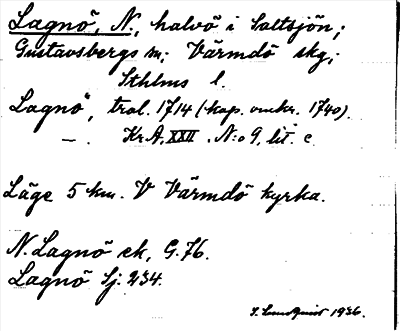 Lagnö, N., halvö i Saltsjön;
Gustavsbergs sn; Värmdö skg;
Sthlms l.
Lagnö, tral. 1714 (kop. omkr. 1740).
—. KrA, XXII. N:o 9, lit. c
Läge 5 km. V Värmdö kyrka.
N. Lagnö ek, G. 76.
Lagnö Sj. 234.
S. Lundquist 1936.